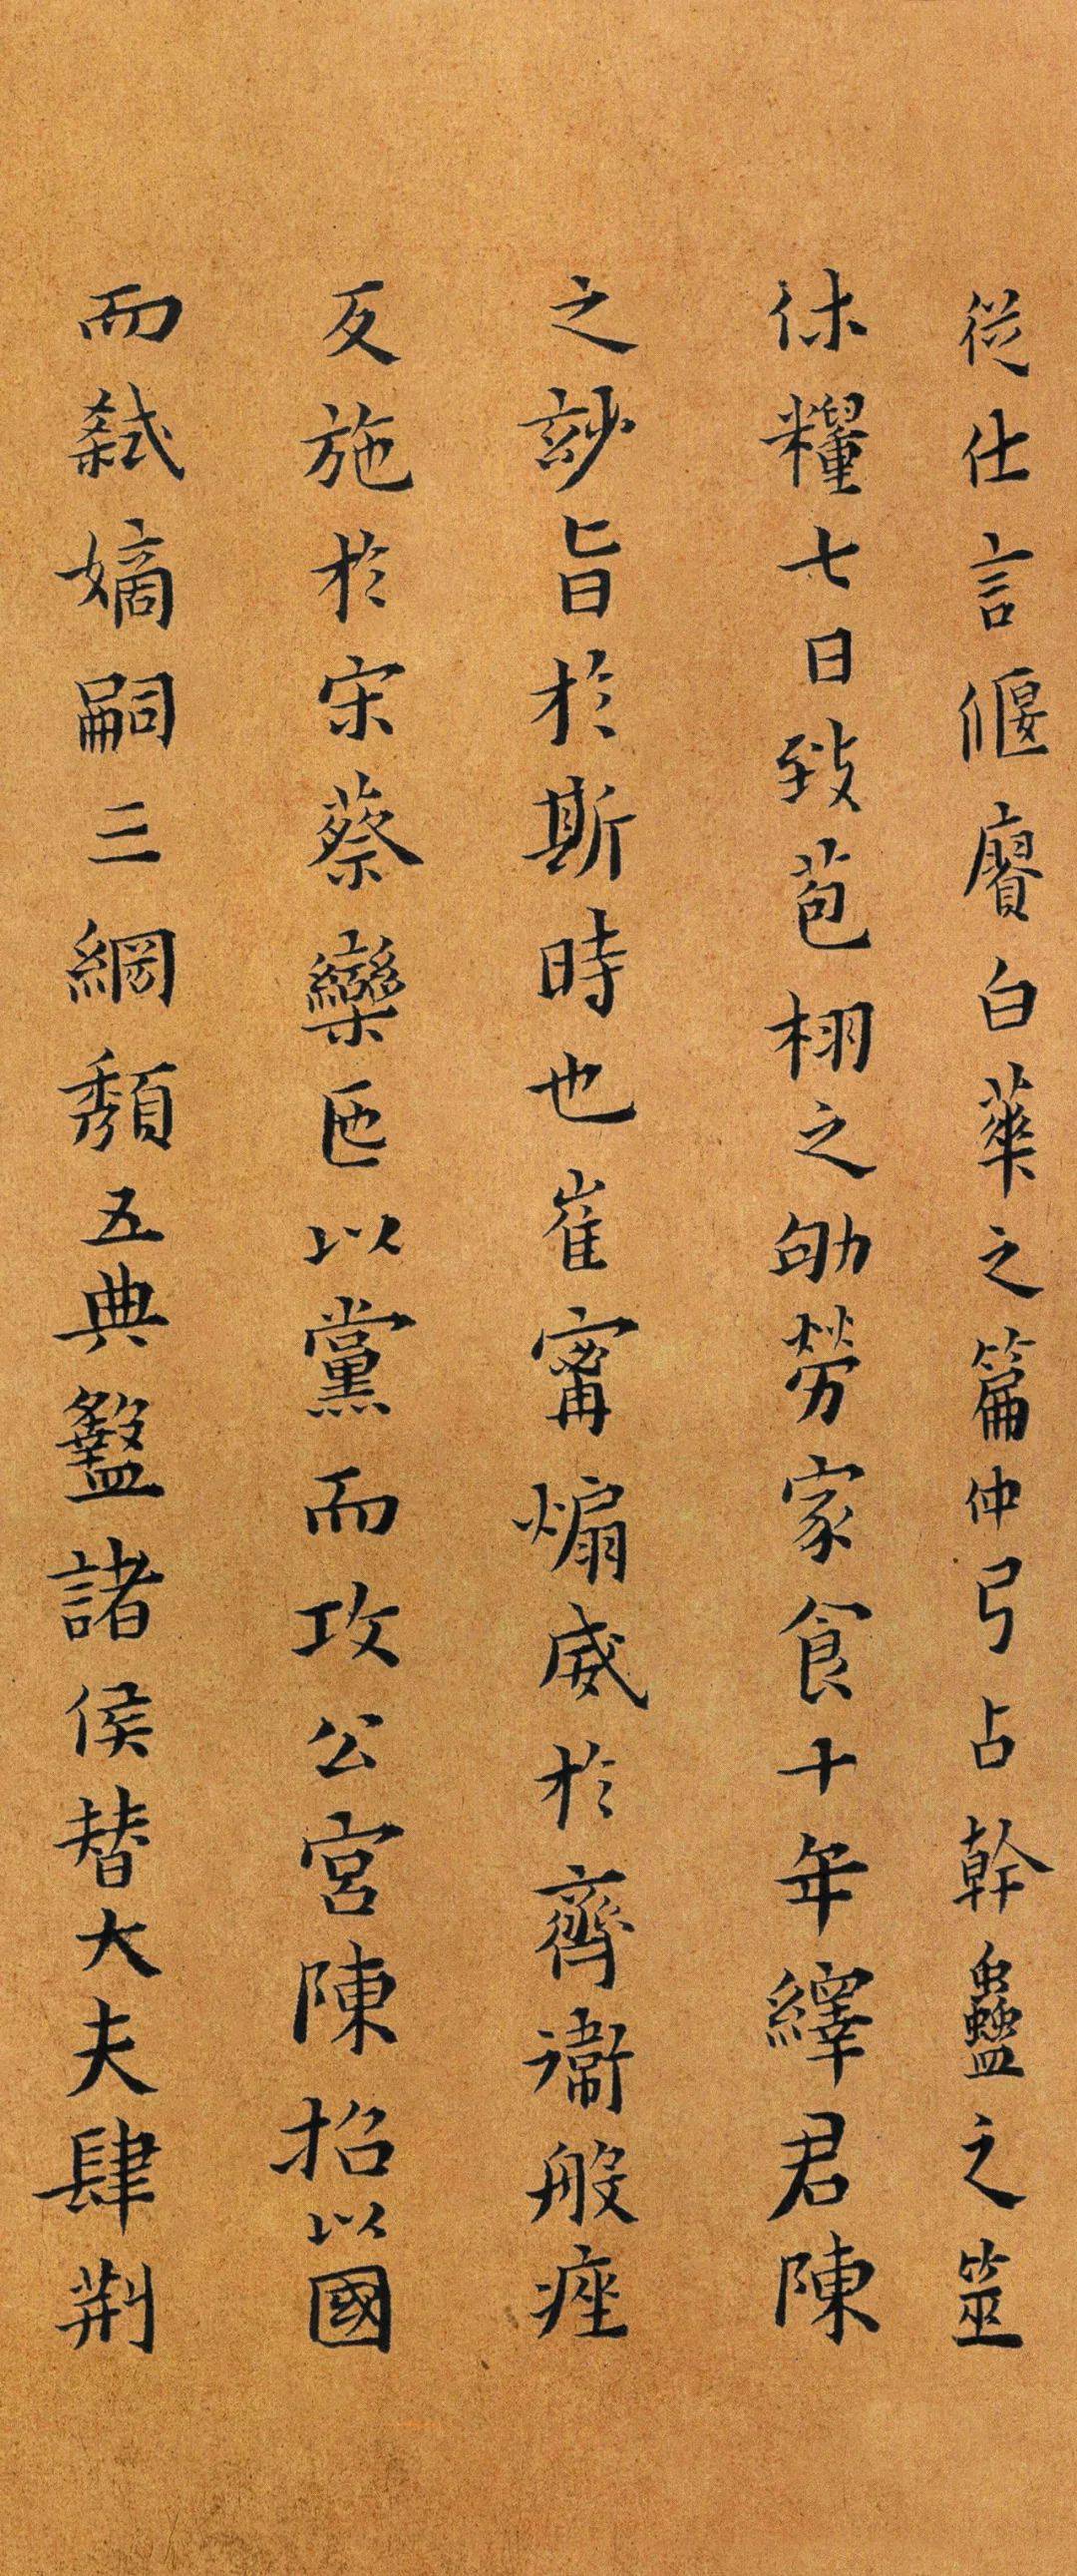 從仕言偃賡白華之篇仲弓占幹蠱之筮
休糧七日致苞栩之劬勞家食十年繹君陳
之玅旨於斯時也崔甯煽威於齊衛般痤
反施於宋蔡欒以黨而攻公宮陳招以國
而弑嫡嗣三綱頹五典盭諸侯替大夫肆荆